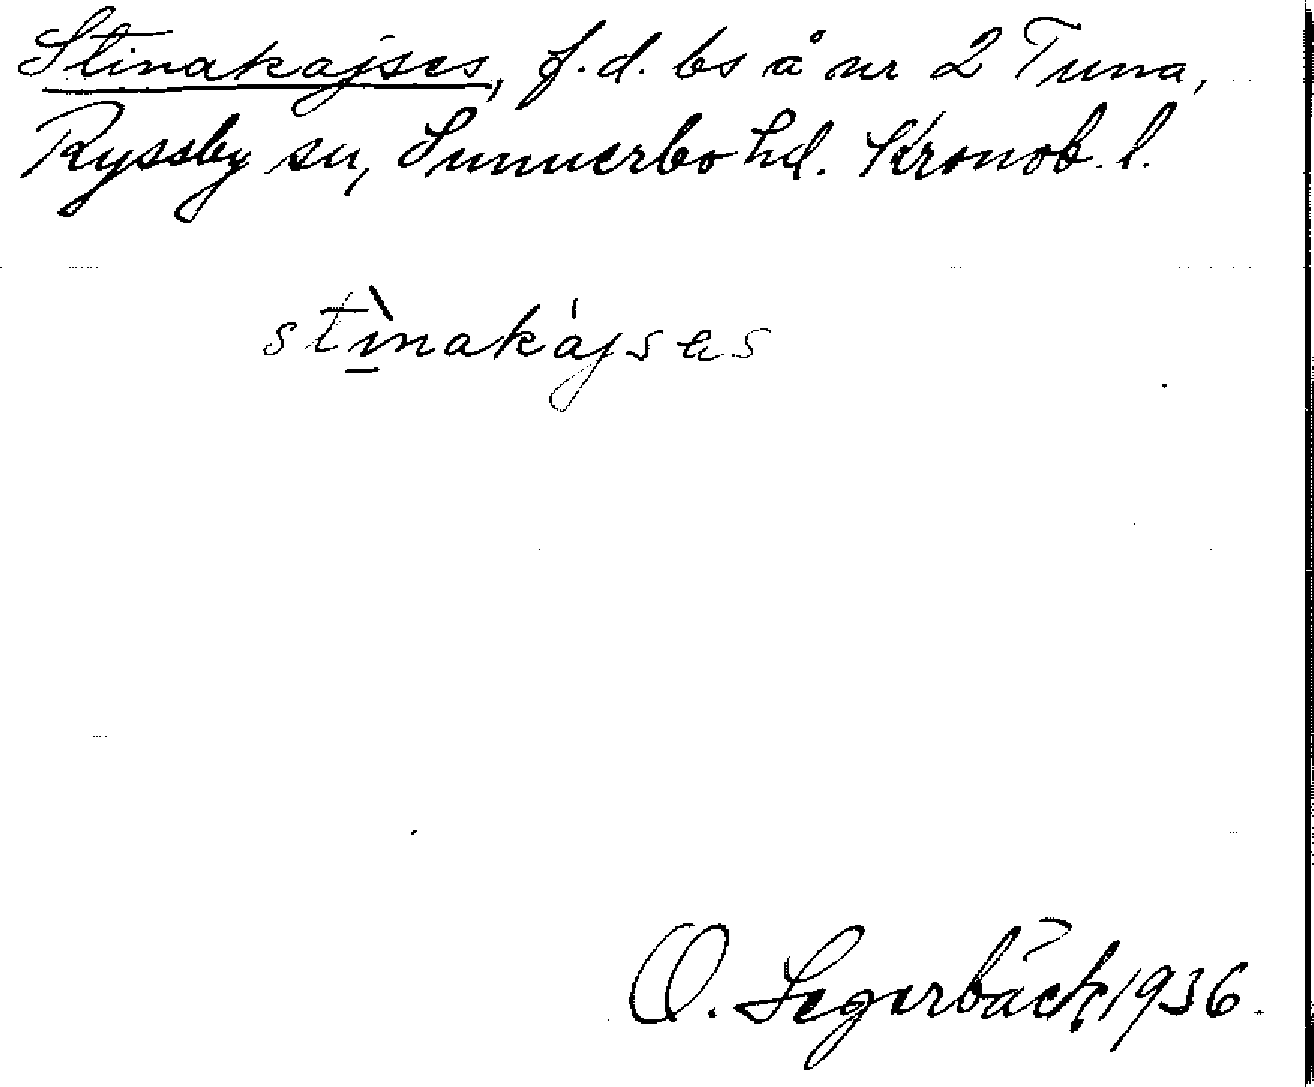 Stinakajses, f.d. bs å nr 2 Tuna,
Ryssby sn, Sunnerbo hd. Kronob. l.
stìnakájses
O. Segerbäck 1936.